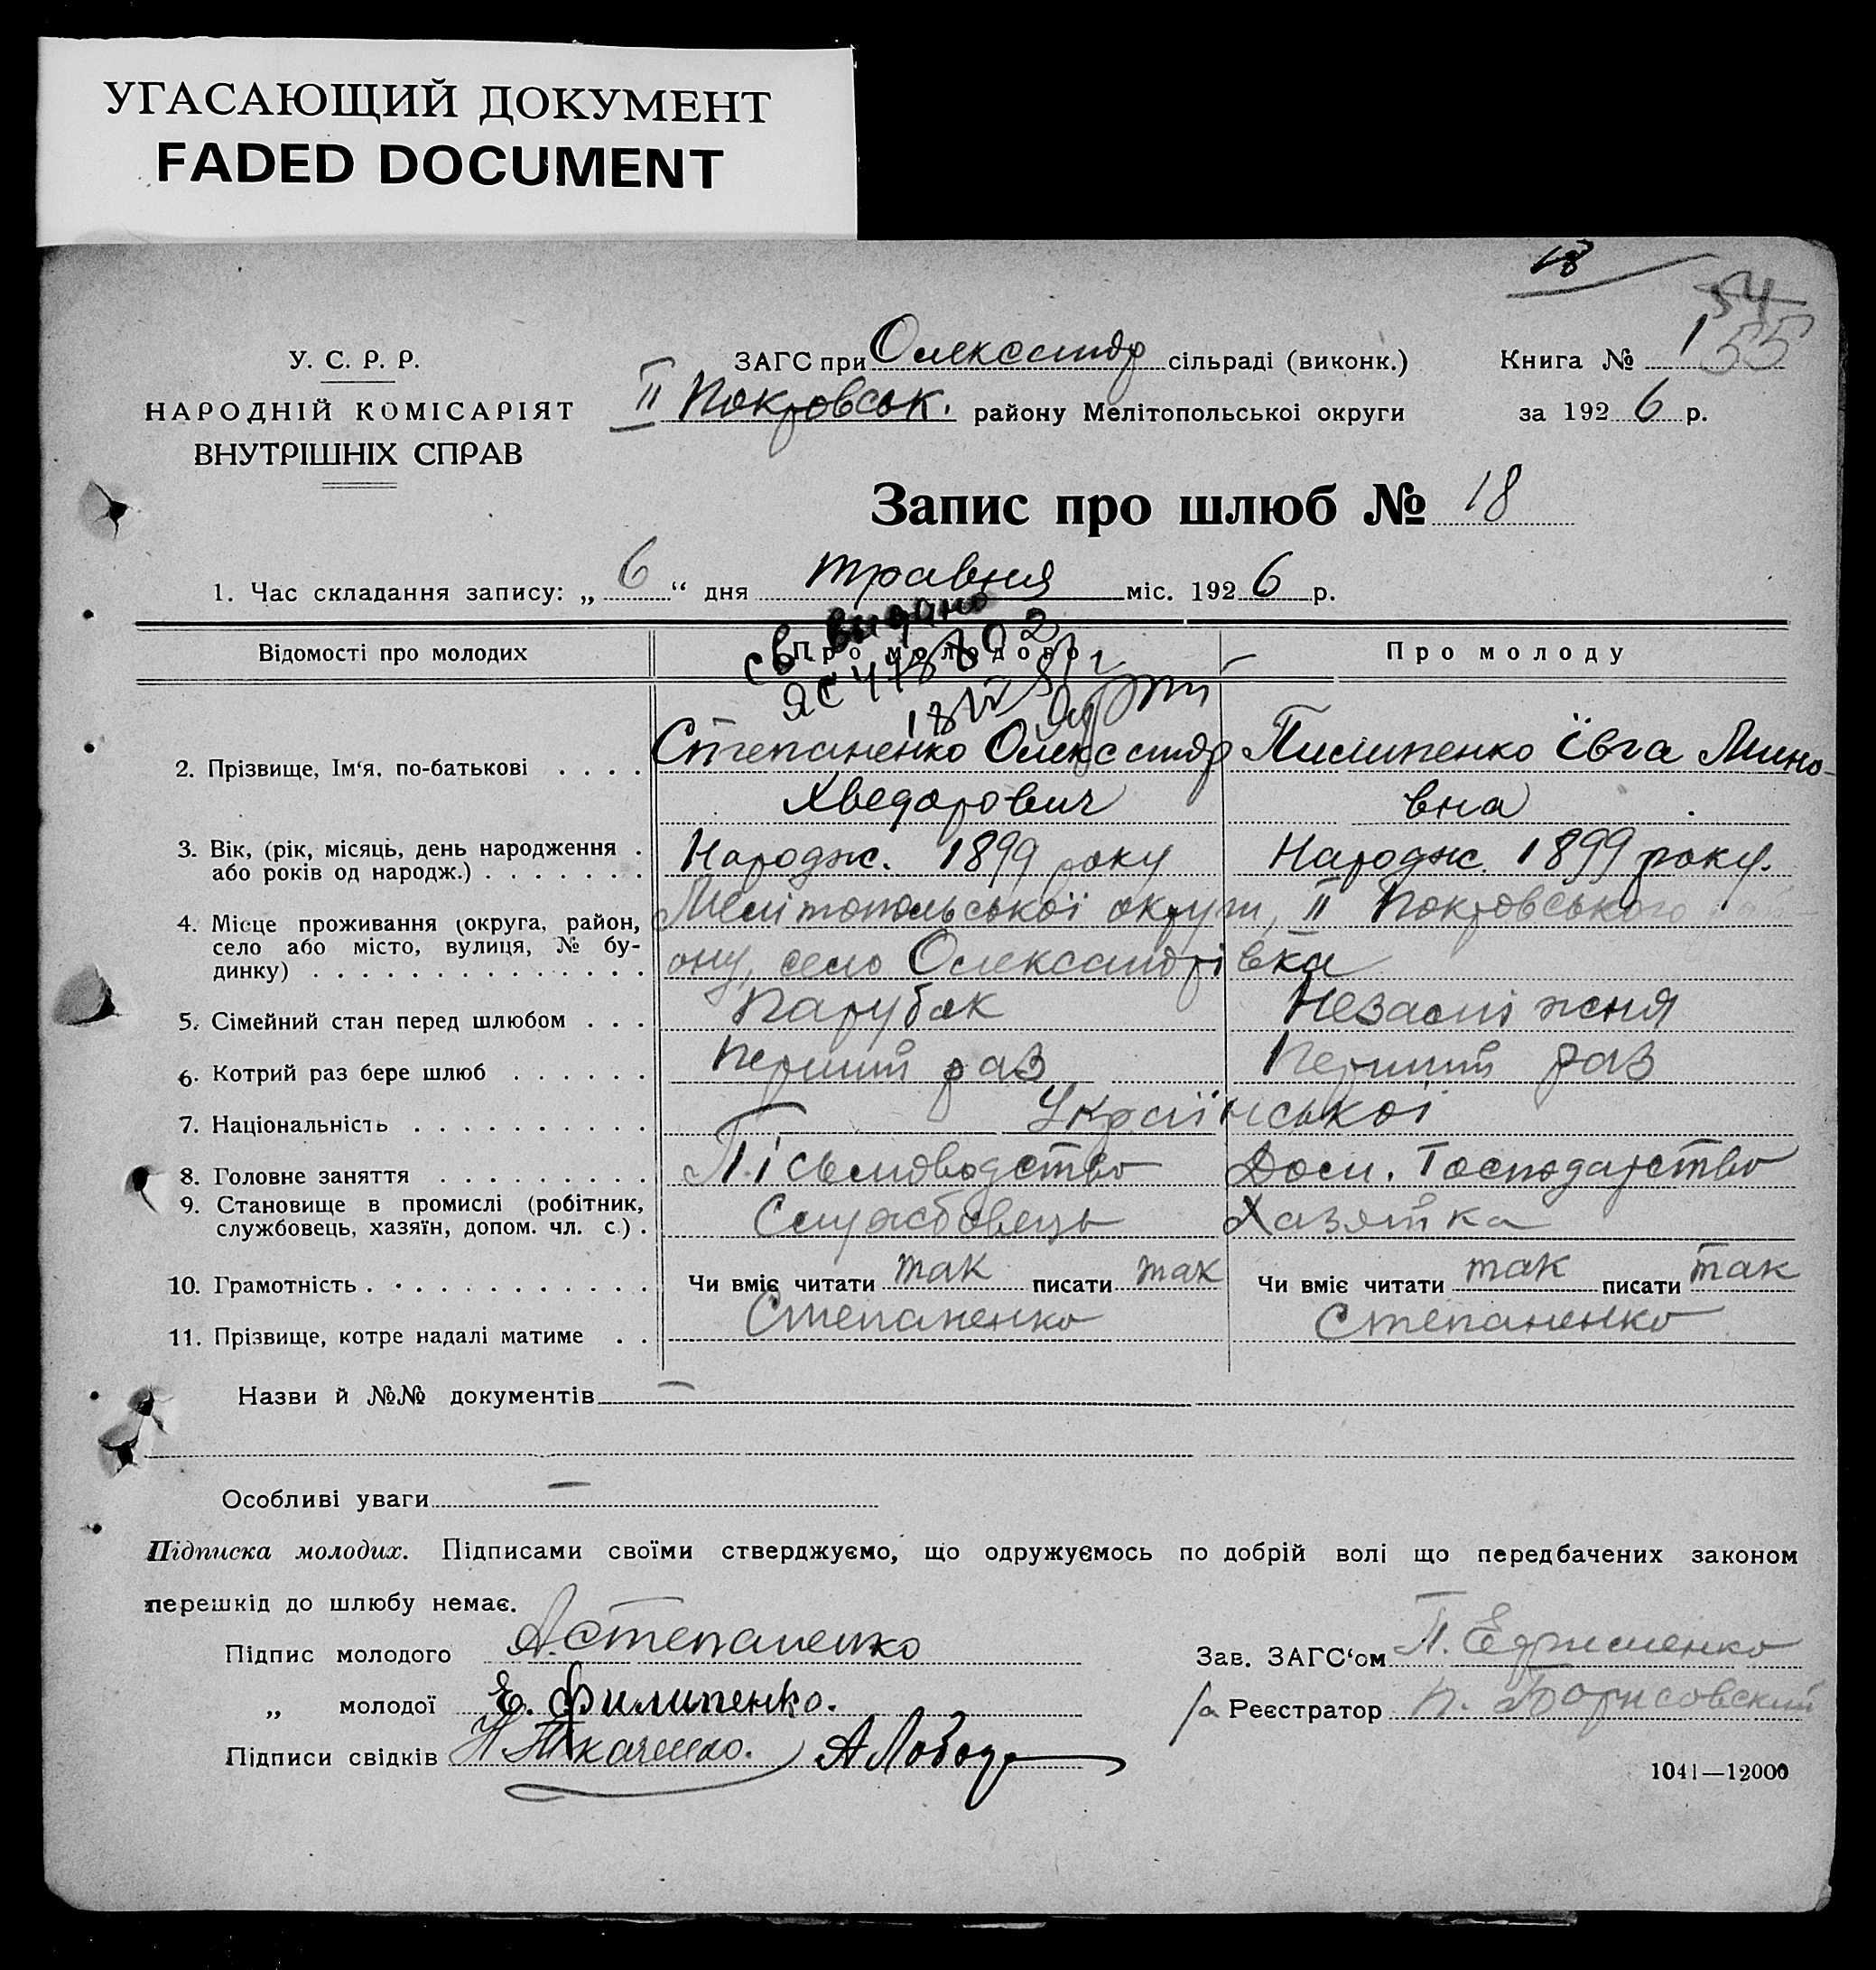 УГАСАЮЩИЙ ДОКУМЕНТ
FADED DOCUMENT
18
54
55
У. С. Р. Р.
НАРОДНІЙ КОМІСАРІЯТ
ВНУТРІШНІХ СПРАВ
ЗАГС при Олександр сільраді (виконк.)
II Покровськ. району Мелітопольської округи
Книга № 1
за 1926 р.
Запис про шлюб № 18
1. Час складання запису: „ 6 “ дня травня міс. 1926 р.
Відомості про молодих
Про молодого
Про молоду
св видано
ЯС
2. Прізвище, Ім‘я, по-батькові . . . . Степаненко Олександр Пилипенко Ївга Мино-
Хведорович вна
3. Вік, (рік, місяць, день народження . Народж. 1899 року Народж. 1899 року.
або років од народж.) . . . . . . .
4. Місце проживання (округа, район, Мелітопольської округи, II Покровського рай-
село або місто, вулиця, № бу- ону, село Олександрівка
динку) . . . . . . . . . . . . . . .
5. Сімейний стан перед шлюбом . . . Парубок Незаміжня
6. Котрий раз бере шлюб . . . . . . Перший раз Перший раз
7. Національність . . . . . . . . . . Української
8. Головне заняття . . . . . . . . . Пісьмоводство Дом. Господарство
9. Становище в промислі (робітник, Службовець Хазяйка
службовець, хазяїн, допом. чл. с.) .
10. Грамотність . . . . . . . . . . . Чи вміє читати так писати так Чи вміє читати так писати так
11. Прізвище, котре надалі матиме . . Степаненко Степаненко
Назви й №№ документів —
Особливі уваги —
Підписка молодих. Підписами своїми стверджуємо, що одружуємось по добрій волі що передбачених законом
перешкід до шлюбу немає.
Підпис молодого А.Степаненко
„ молодої Е. Филипенко.
Підписи свідків Н Ткаченко. А Лобода
Зав. ЗАГС‘ом П. Ефименко
/а Реєстратор П. Борисовский
1041—12000